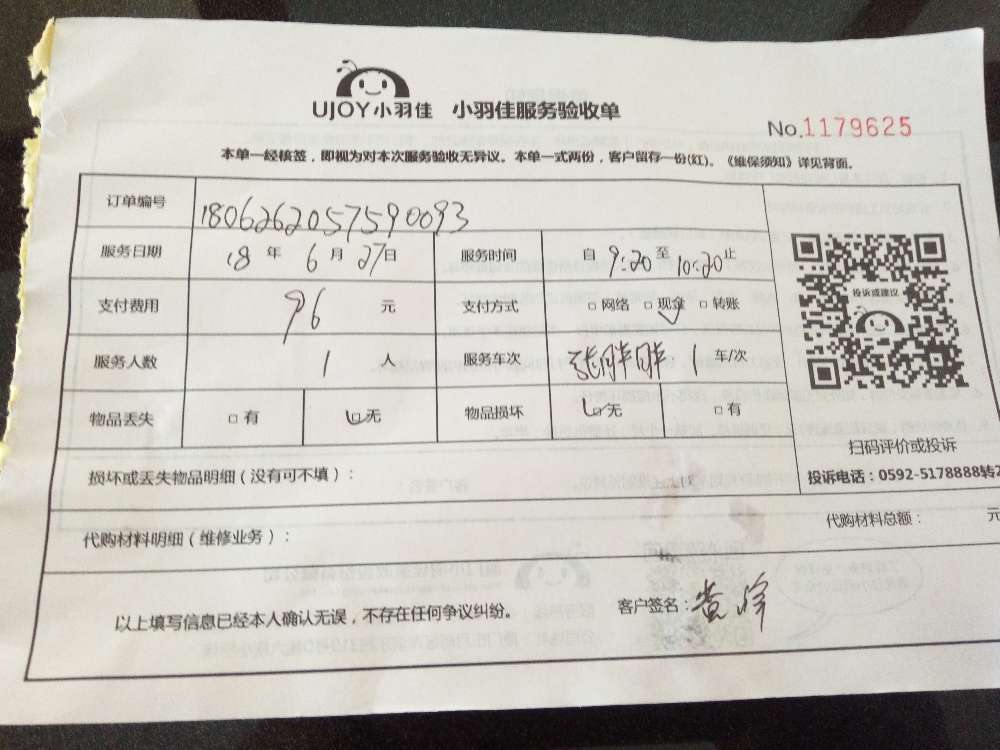 UJOY小羽佳 小羽佳服务验收单
No.1179625
本单一经核签，即视为对本次服务验收无异议。本单一式两份，客户留存一份(红)。《维保须知》详见背面。
订单编号 1806262057590093
服务日期 18 年 6 月 27 日 服务时间 自 9:20 至 10:20 止
支付费用 96 元 支付方式 □网络 □现金 □转账
服务人数 1 人 服务车次 张胖胖 1 车/次
物品丢失 □有 □无 物品损坏 □无 □有
投诉或建议
扫码评价或投诉
投诉电话：0592-5178888转2
损坏或丢失物品明细（没有可不填）：
代购材料明细（维修业务）：
代购材料总额： 元
以上填写信息已经本人确认无误，不存在任何争议纠纷。
客户签名：黄